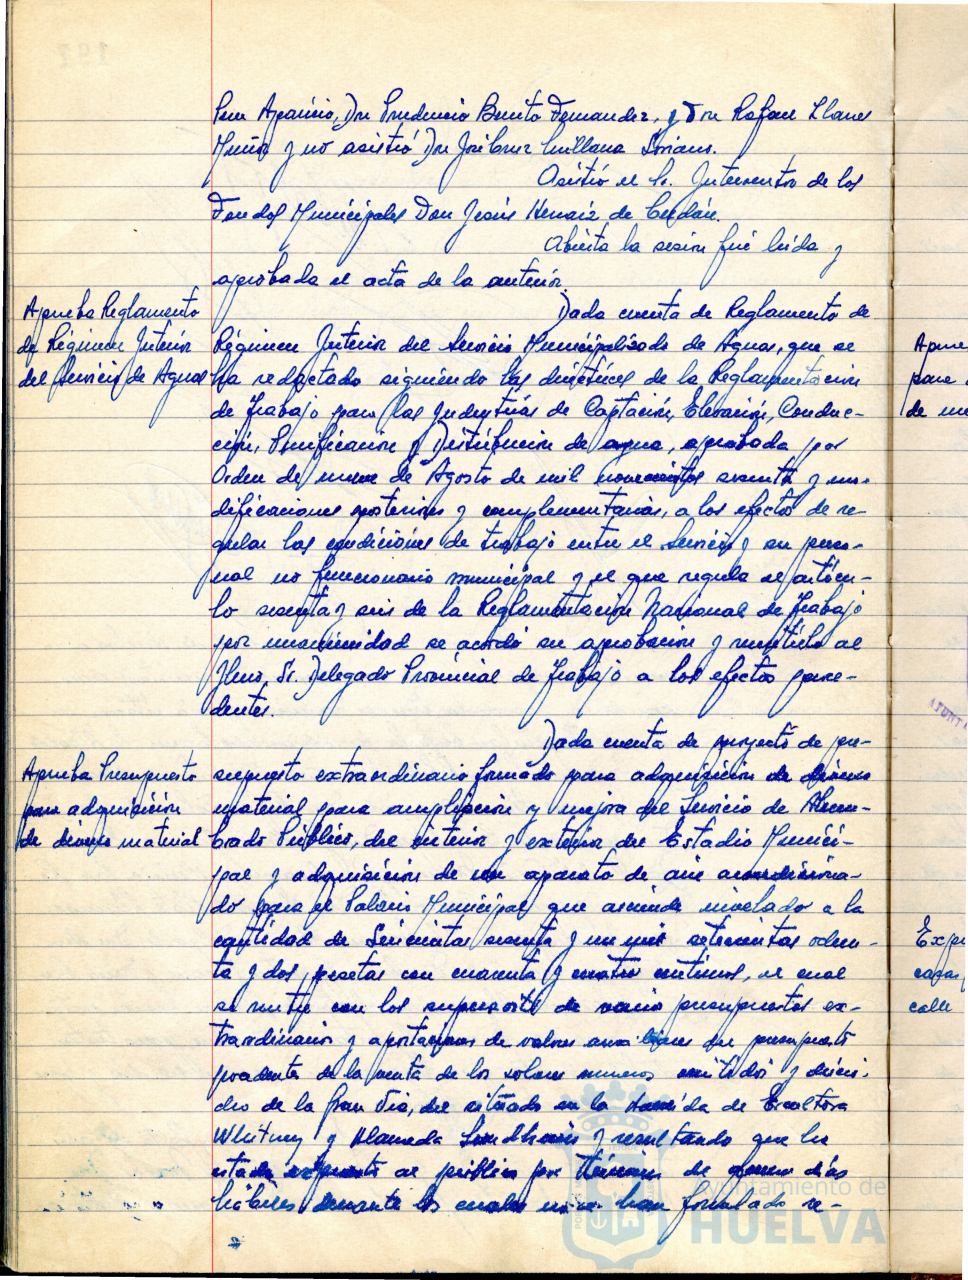 Aparicio, Don Prudencio Benito Fernandez, y Don Rafael Llanes
Muñoz y no asistió Don José Cruz Soriano.
Asistió el Sr. Interventor de los
Fondos Municipales Don Jesús de
Abierta la sesion fué leida y
aprobada el acta de la anterior.
Aprueba Reglamento
de Régimen Interior
del Servicio de Aguas
Dada cuenta de Reglamento de
Régimen Interior del Servicio Municipalizado de Aguas, que se
ha redactado siguiendo las directrices de la Reglamentacion
de Trabajo para las Industrias de Captación, Elevación, Conduc-
ción, Purificacion y Distribucion de agua, aprobada por
Orden de nueve de Agosto de mil novecientos sesenta y mo-
dificaciones posteriores y complementarias, a los efectos de re-
gular las condiciones de trabajo entre el Servicio y su perso-
nal no funcionario municipal y el que regula el artícu-
lo sesenta y seis de la Reglamentación Nacional de Trabajo
por unanimidad se acordó su aprobacion y remitirlo al
Ilmo. Sr. Delegado Provincial de Trabajo a los efectos proce-
dentes.
Aprueba Presupuesto
para adquisición
de diverso material
Dada cuenta de proyecto de pre-
supuesto extraordinario formado para adquisicion de diverso
material para ampliacion y mejora del Servicio de Alum-
brado Público, del interior y exterior del Estadio Munici-
pal y adquisicion de un aparato de aire acondiciona-
do para el Palacio Municipal que asciende nivelado a la
cantidad de Seiscientas sesenta y un mil setecientas ochen-
ta y dos pesetas con cuarenta y cuatro centimos, el cual
se nutre con los de varios presupuestos ex-
traordinarios y aportaciones de valores auxiliares del presupuesto
procedentes de la venta de los solares numeros y dieci-
de la Gran Via, del situado en la Avenida de Escultora
Whitney y Alameda Sundheim y resultando que ha
estado expuesto al público por término de quince días
hábiles durante los cuales no se han formulado re-
Ayuntamiento de
HUELVA